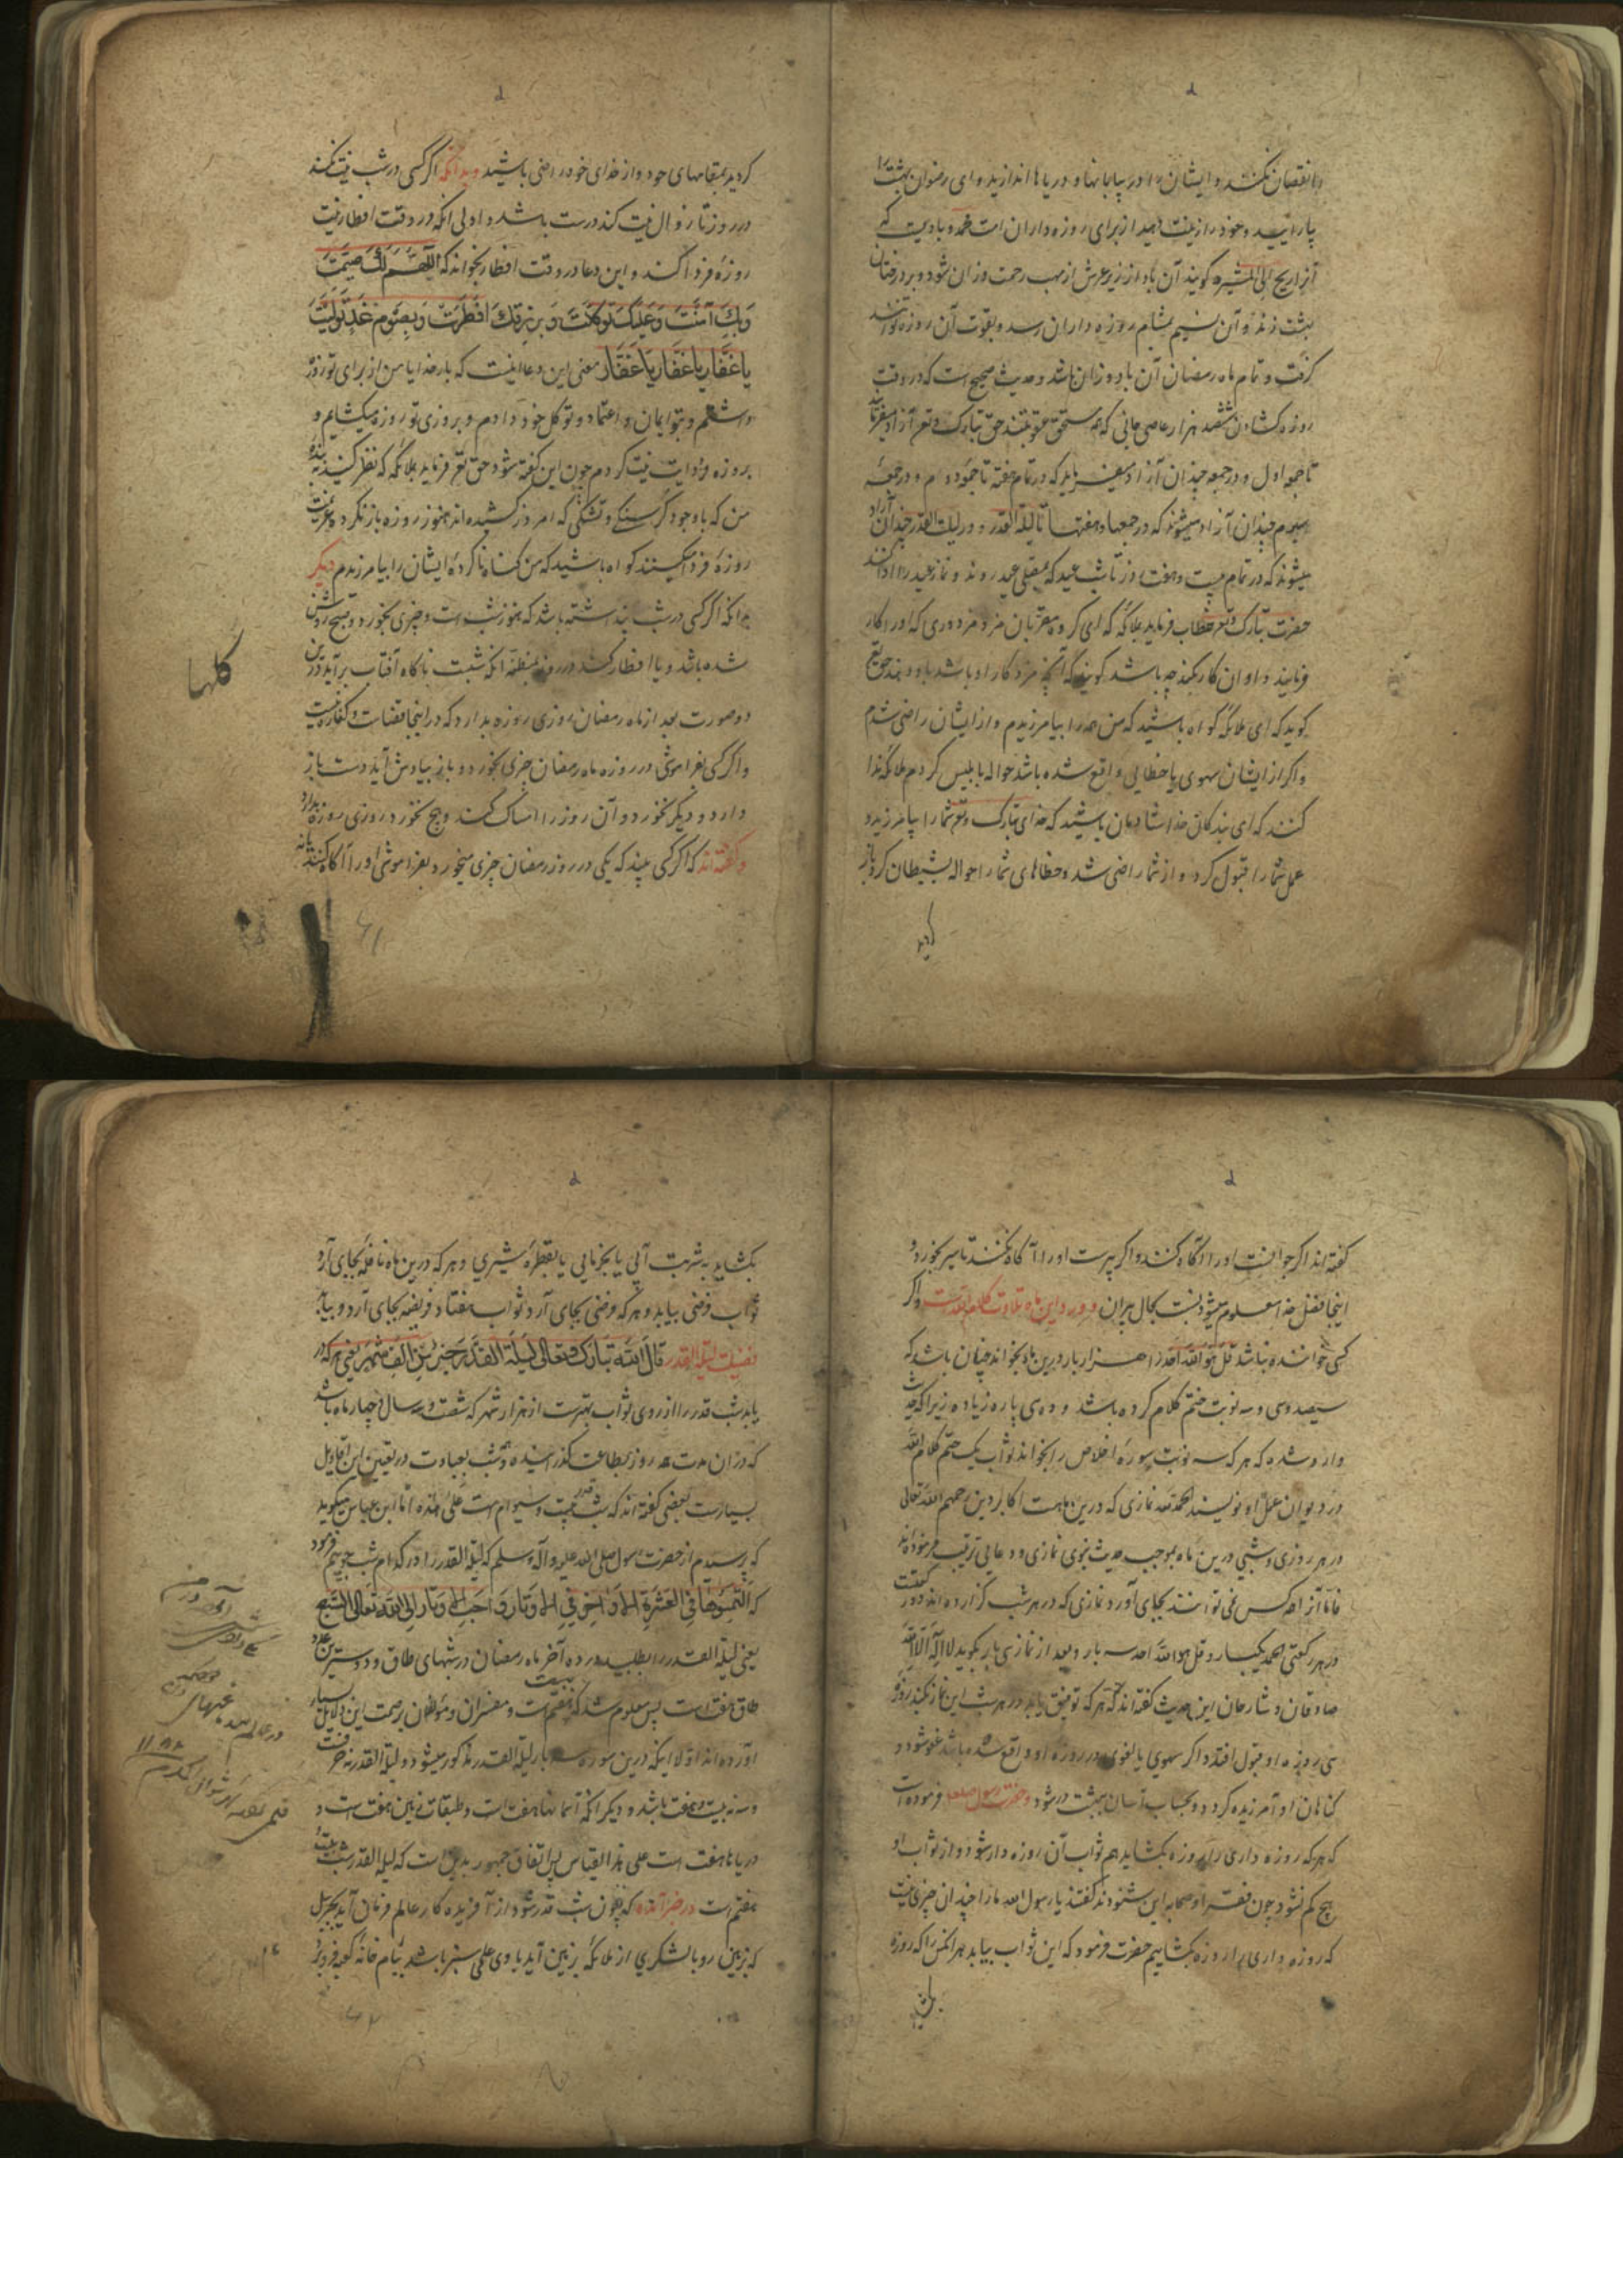 را نقصان نکنند و ایشان را در بیابانها و دریاها اندازید و ای رضوان بهشت را
بیارایید و خود را زینت دهید از برای روزه داران امت محمد و بادیست که
آنرا ریح المثیره گویند آن باد از زیر عرش از مهب رحمت وزان شود و بر درختان
بهشت زند و آن نسیم بمشام روزه داران رسد و بقوت آن روزه توانند
گرفت و تمام ماه رمضان آن باد وزان باشد و حدیث صحیح است که در وقت
روزه کشادن ششصد هزار عاصی جانی که همه مستحق عقوبتند حق تبارک و تع آزاد میفرماید
تا جمعه اول و در جمعه چندان آزاد میفرماید که در تمام هفته تا جمعه دوم و در جمعه
سوم چندان آزاد میشوند که در جمعها و هفتها تا لیلة القدر و در لیلت القدر چندان آزاد
میشوند که در تمام بیست و هفت روز تا شب عید که بمصلی عید روند و نماز عید را ادا کنند
حضرت تبارک و تع خطاب فرماید بملائکه که ای گروه مقربان من مزد مزدوری که او را کار
فرمایند و او آن کار بکند چه باشد گویند که آنچه مزد کار او باشد باو دهند حق تع
گوید که ای ملائکه گواه باشید که من همه را بیامرزیدم و از ایشان راضی شدم
و اگر از ایشان سهوی یا خطایی واقع شده باشد حواله بابلیس کردم ملائکه ندا
کنند که ای بندگان خدا شادمان باشید که خدای تبارک و تع شما را بیامرزید و
عمل شما را قبول کرد و از شما راضی شد و خطاهای شما را حواله بشیطان کرد باز
گردید
گردید بمقامهای خود و از خدای خود راضی باشید و بدانکه اگر کسی در شب نیت نکند
در روز تا زوال نیت کند درست باشد و اولی آنکه در وقت افطار نیت
روزه فردا کند و این دعا در وقت افطار بخواند که اَللّهُمَّ لَکَ صُمْتُ
وَبِکَ آمَنْتُ وَعَلَیْکَ تَوَکَّلْتُ وَبِرِزْقِکَ اَفْطَرْتُ وَبِصَوْمِ غَدٍ نَوَیْتُ
یا غَفّار یا غَفّار یا غَفّار معنی این دعا اینست که بار خدایا من از برای تو روزه
داشتم و بتو ایمان و اعتماد و توکل خود دادم و بروزی تو روزه میکشایم و
بروزه فردایت نیت کردم چون این گفته شود حق تع فرماید بملائکه که نظر کنید به بنده
من که باوجود گرسنگی و تشنگی که امروز کشیده اند هنوز روزه باز نکرده عزیمت
روزه فردا میکنند گواه باشید که من گناه ناکرده ایشان را بیامرزیدم دیگر
بدانکه اگر کسی در شب پنداشته باشد که هنوز شب است و چیزی بخورد و صبح روشن
شده باشد و یا افطار کند در روز بمظنه آنکه شبست ناگاه آفتاب برآید درین
دو صورت بعد از ماه رمضان روزی روزه بدارد که در اینجا قضاست و کفاره نیست
و اگر کسی بفراموشی در روزه ماه رمضان چیزی بخورد و باز بیادش آید دست باز
دارد و دیگر نخورد و آن روز را امساک کند و هیچ نخورد روزی روزه بدارد
و گفته اند که اگر کسی بیند که یکی در روز رمضان چیزی میخورد بفراموشی او را آگاه کنند یا نه
کلها
گفته اند اگر جوانست او را آگاه کنند و اگر پیرست او را آگاه نکنند تا سیر بخورد و
اینجا فضل خدا معلوم میشود نسبت بحال پیران و ورد این ماه تلاوت کلام الله است و اگر
کسی خواننده نباشد قل هو الله احد را هزار بار درین ماه بخواند چنان باشد که
سیصد و سی و سه نوبت ختم کلام کرده باشد و ده سی پاره زیاده زیرا که حدیث
وارد شده که هر که سه نوبت سوره اخلاص را بخواند ثواب یک ختم کلام الله
در دیوان عمل او نویسند الحمدلله نمازی که درین ماهست اکابر دین رحمهم الله تعالی
در هر روزی و شبی درین ماه بموجب حدیث نبوی نمازی و دعایی ترتیب فرموده اند
فاما آنرا همه کس نمی توانند بجای آورد نمازی که در هر شب گزارده اند دو رکعتست
در هر رکعتی الحمد یکبار و قل هو الله احد سه بار و بعد از نمازی بار بگوید لا اله الا الله
صادقان و شارحان این حدیث گفته اند که هر که توفیق یابد در هر شب این نماز بگذارد روزه
سی روزه او قبول افتد و اگر سهوی یا لغوی در روزه او واقع شده باشد عفو شود و
گناهان او آمرزیده گردد و بحساب آسان ببهشت در شود و حضرت رسول صلعم فرموده است
که هر که روزه داری را روزه بکشاید هم ثواب آن روزه دار شود و از ثواب او
هیچ کم نشود چون فقراء صحابه این شنودند گفتند یا رسول الله ما را چندان چیزی نیست
که روزه داری را روزه بکشاییم حضرت فرمود که این ثواب بیابد هر آنکس را که روزه
بکشاید
بکشاید بشربت آبی یا بخرمایی یا بقطره شیری و هر که درین ماه نافله بجای آرد
ثواب فرضی بیابد و هر که فرضی بجای آرد ثواب هفتاد فریضه بجای آرد و بیابد
فضیلت لیلة القدر قالَ اللهُ تَبارَکَ وَتَعالی لَیْلَةُ الْقَدْرِ خَیْرٌ مِنْ اَلْفِ شَهْرٍ یعنی هر که در
یابد شب قدر را از روی ثواب بهترست از هزار شهر که هشتاد و سه سال و چهار ماه باشد
که در آن مدت همه روز بطاعت گذرانیده و شب بعبادت در یقین این اقاویل
بسیارست بعضی گفته اند که شب قدر بیست و سیوم است علی هذه اما ابن عباس میگوید
که پرسیدم از حضرت رسول صلی الله علیه و آله وسلم که لیلة القدر را در کدام شب جوییم فرمود
یعنی لیلة القدر را بطلبید در ده آخر ماه رمضان در شبهای طاق و دوستترین عدد
طاق هفت است پس معلوم شد که بیست هفتم است و مفسران و مؤلفان بر صحت این دلایل بسیار
آورده اند اولا اینکه درین سوره سه بار لیلة القدر مذکور میشود و لیلة القدر نه حرفست
و سه نه بیست و هفت باشد و دیگر آنکه آسمانها هفت است و طبقات زمین هفت است و
دریاها هفت است علی هذا القیاس پس اتفاق جمهور بدین است که لیلة القدر شب بیست
هفتم است در خبر آمده که چون شب قدر شود از آفریده کار عالم فرمان آید بجبرییل
که بزمین رو با لشکری از ملائکه بزمین آید با وی علمی سبز باشد ببام خانه کعبه فرو برد